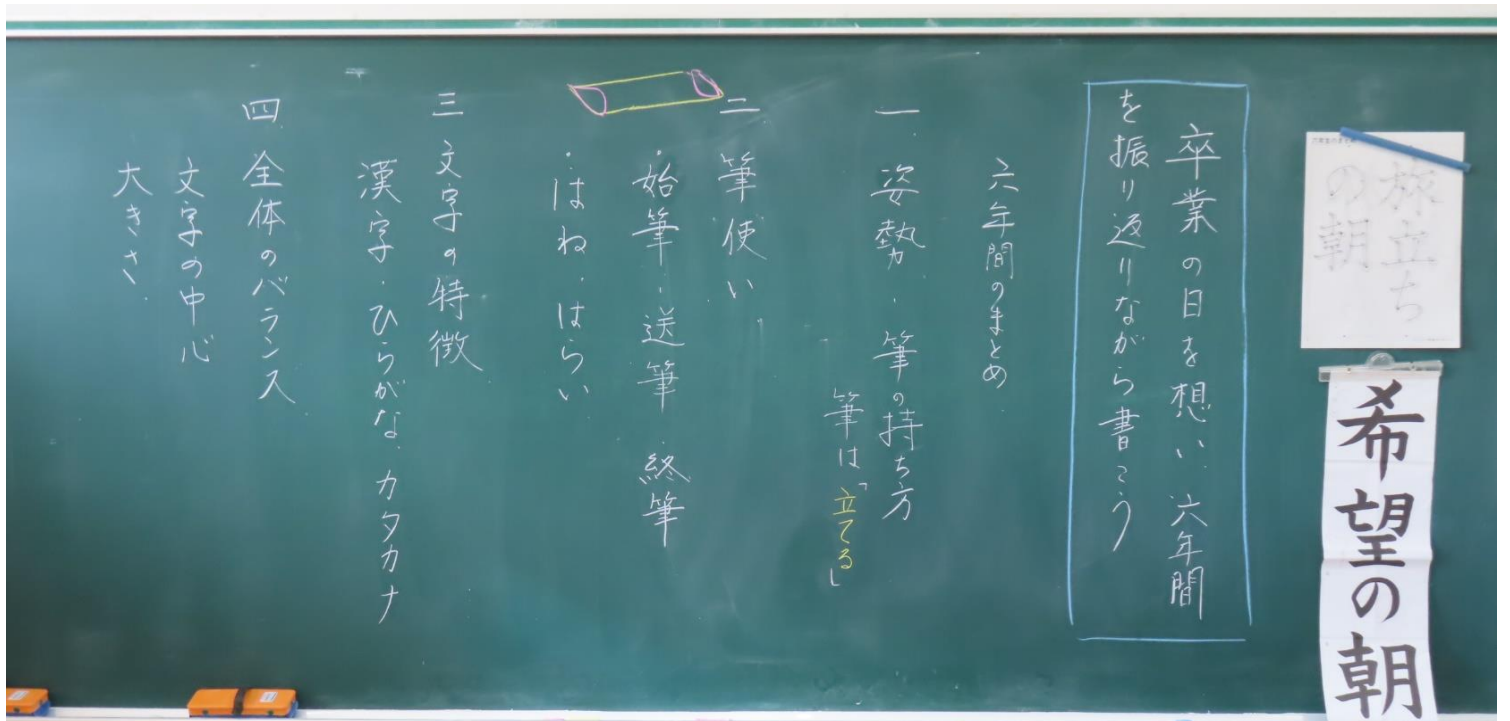 旅立ち
の朝
希望の朝
卒業の日を想い、六年間
を振り返りながら書こう
六年間のまとめ
一、姿勢・筆の持ち方
筆は「立てる」
二、筆使い
・始筆・送筆・終筆
・はね・はらい
三 文字の特徴
漢字・ひらがな・カタカナ
四、全体のバランス
文字の中心
大きさ